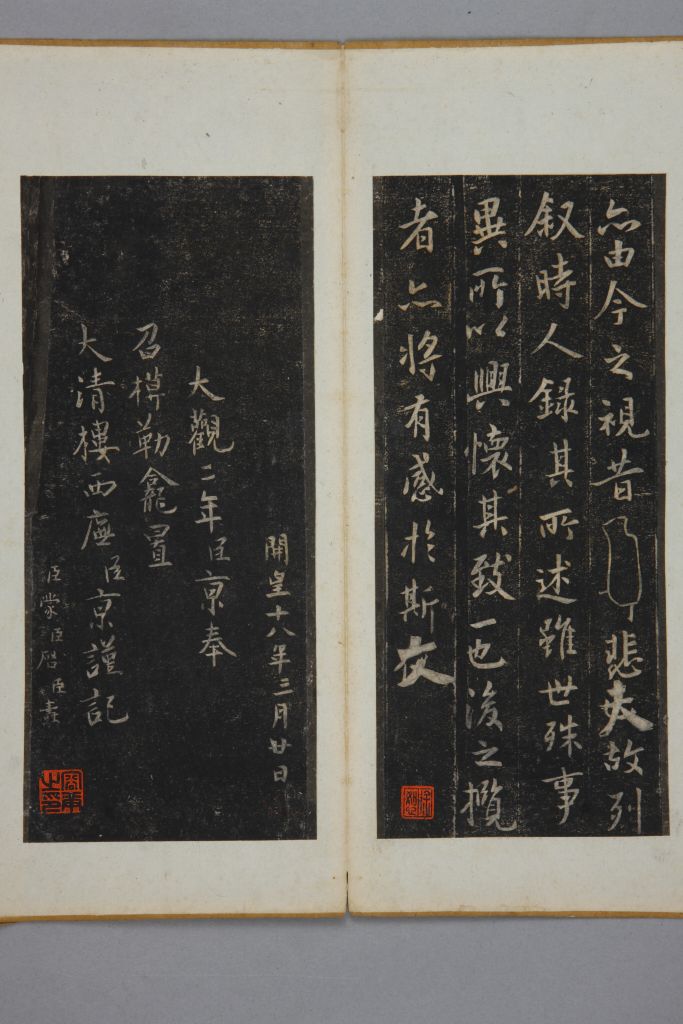 亦由今之視昔悲夫故列
叙時人録其所述雖世殊事
異所以興懷其致一也後之攬
者亦将有感於斯文
開皇十八年三月廿日
大觀二年臣京奉
召摹勒龕置
大清樓西廡臣京謹記